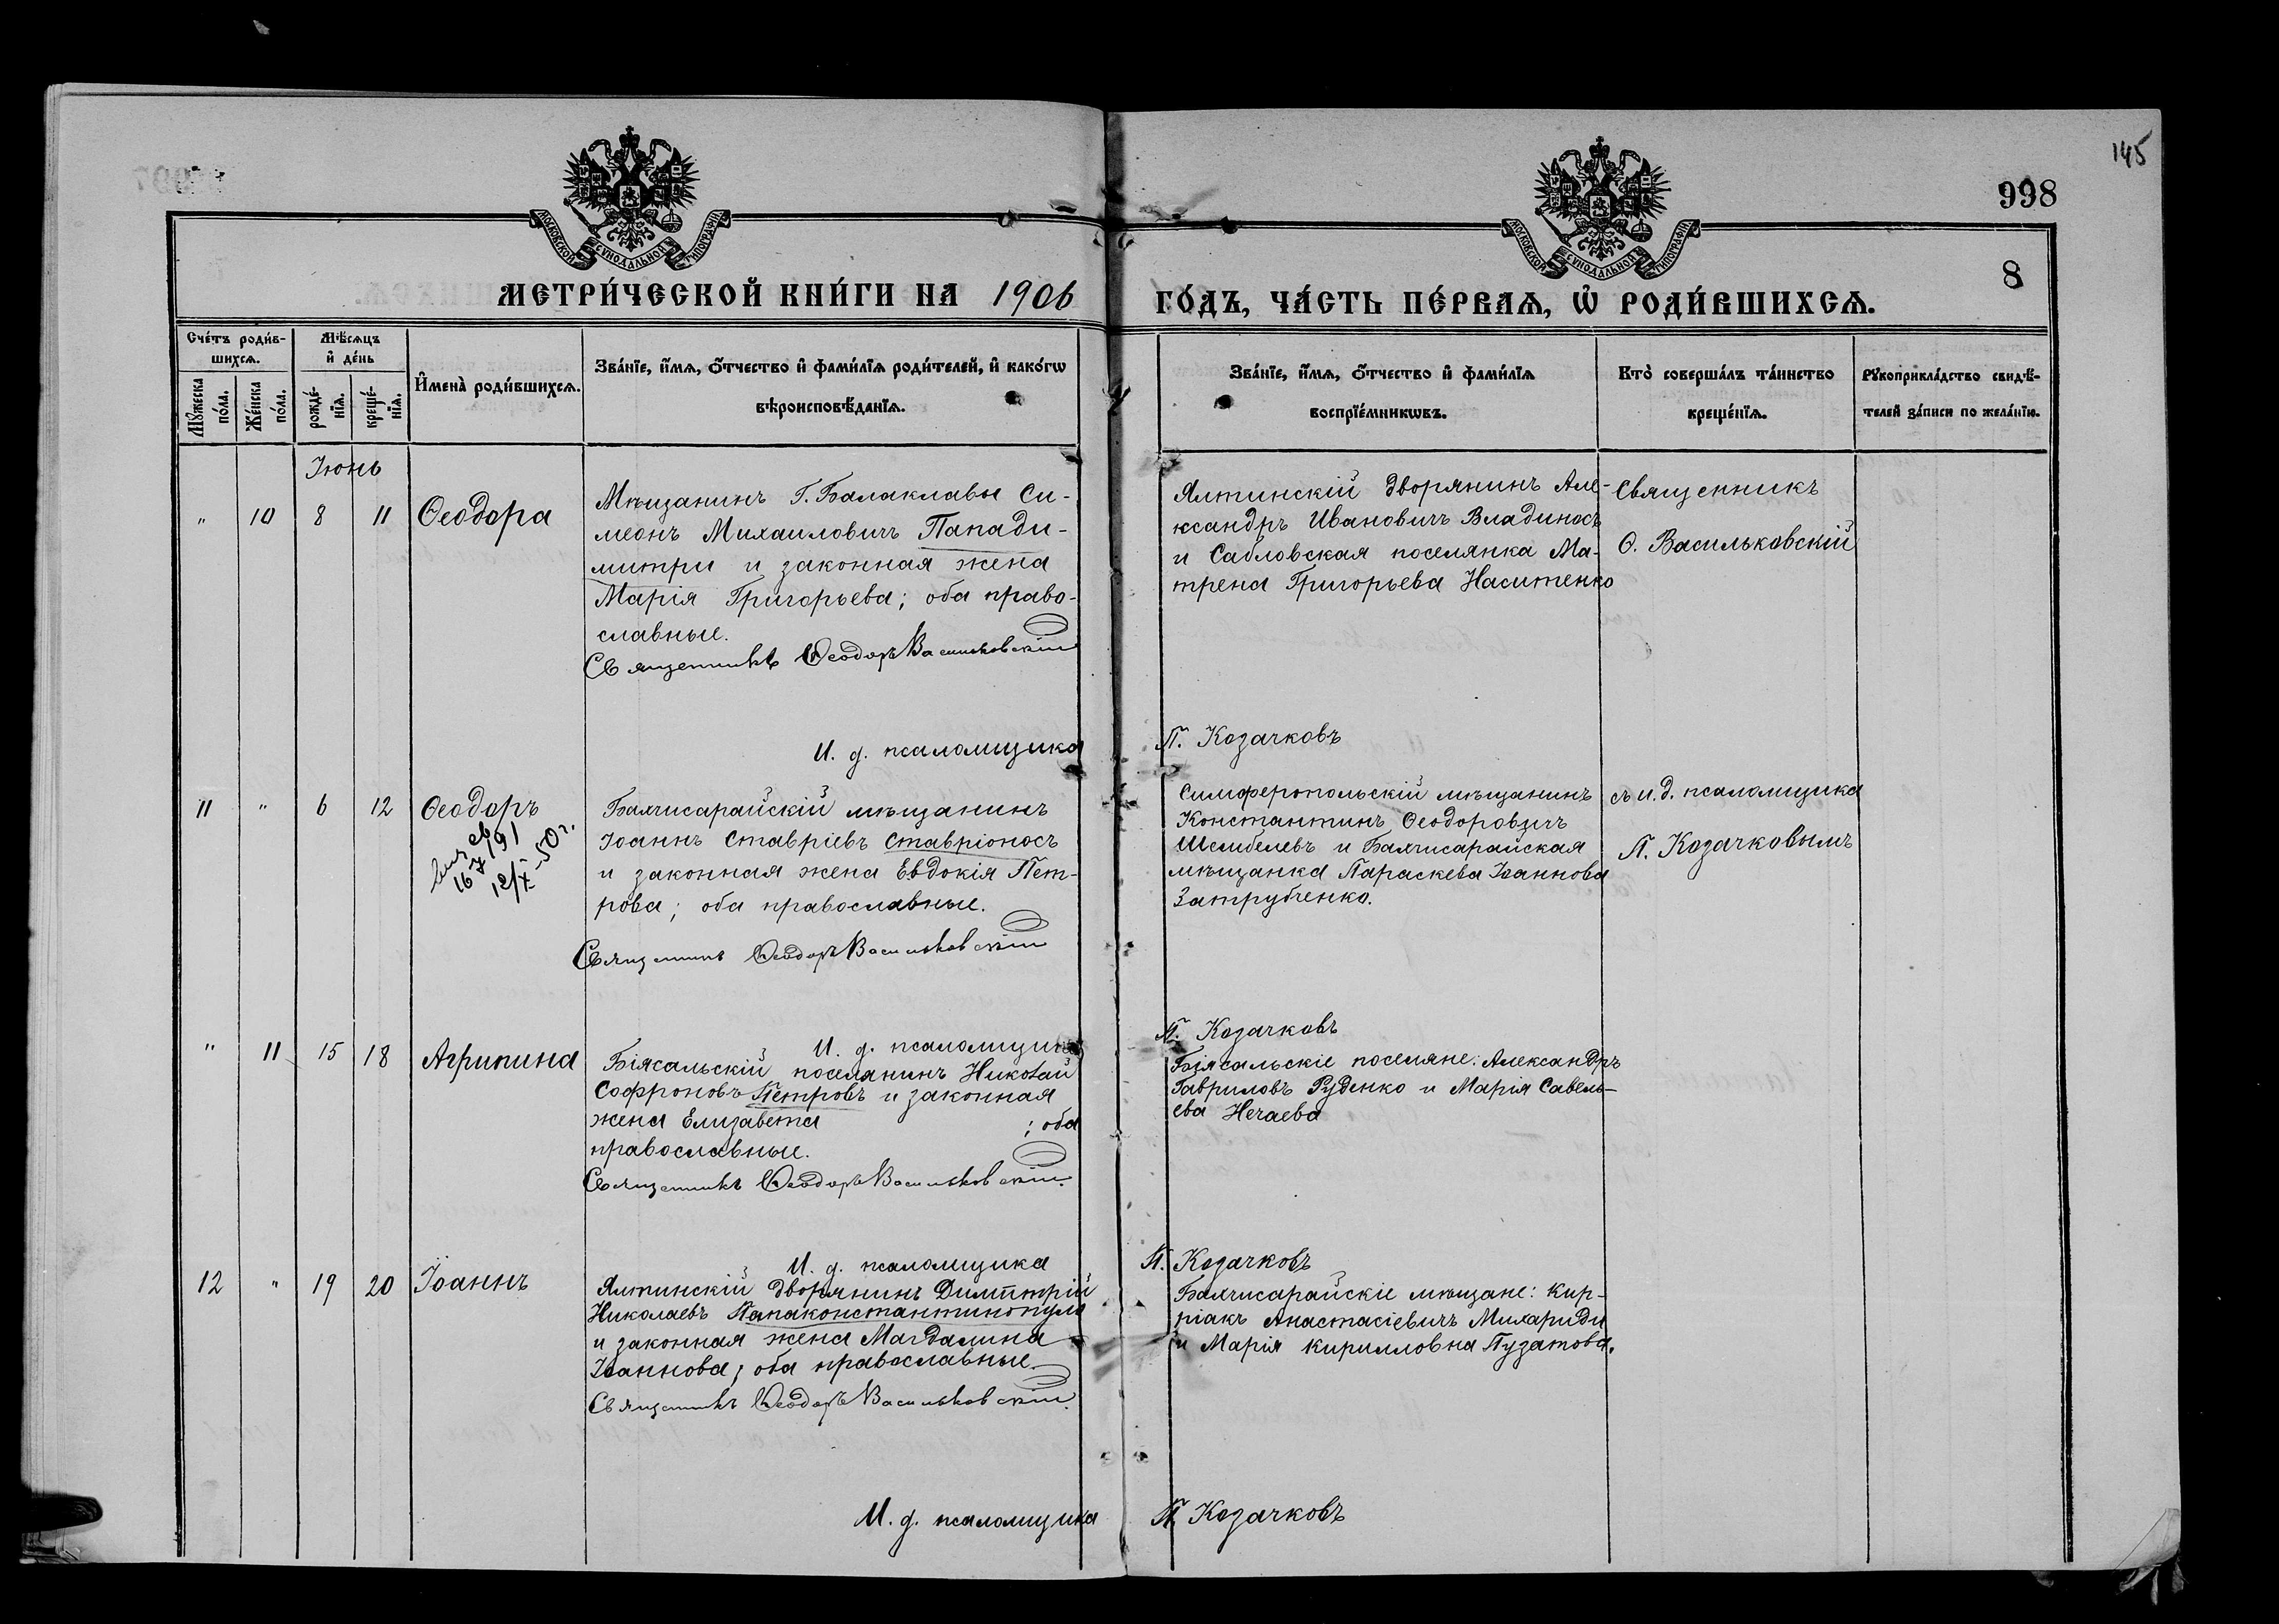 145
998
8
МОСКОВСКОЙ СѴНОДАЛЬНОЙ ТИПОГРАФІИ
МОСКОВСКОЙ СѴНОДАЛЬНОЙ ТИПОГРАФІИ
МЕТРИ́ЧЕСКОЙ КНИ́ГИ НА 1906
ГО́ДЪ, ЧА́СТЬ ПЕ́РВАѦ, Ѡ҆ РОДИ́ВШИХСѦ.
Сче́тъ роди́в-
шихсѧ.
Мꙋжеска
по́ла.
Же́нска
по́ла.
Мѣ́сѧцъ
и҆ де́нь
рожде́-
нїѧ.
креще́-
нїѧ.
И҆мена̀ роди́вшихсѧ.
Зва́нїе, и҆́мѧ, ѻ҆́тчество и҆ фами́лїѧ роди́телей, и҆ како́гѡ
вѣроисповѣ́данїѧ.
Зва́нїе, и҆́мѧ, ѻ҆́тчество и҆ фами́лїѧ
воспрїе́мникѡвъ.
Кто̀ соверша́лъ та́инство
креще́нїѧ.
Рꙋкоприкла́дство свидѣ́-
телей за́писи по жела́нїю.
Іюнь
" 10 8 11 Ѳеодора
Мѣщанинъ Г. Балаклавы Си-
меонъ Михаиловичъ Папади-
митри и законная жена
Марія Григорьева; оба право-
славные.
Священникъ Ѳеодоръ Васильковскій
Ялтинскій дворянинъ Але-
ксандръ Ивановичъ Владиносъ
и Сабловская поселянка Ма-
трена Григорьева Наситенко
Священникъ
Ѳ. Васильковскій
И. д. псаломщика П. Козачковъ
11 " 6 12 Ѳеодоръ
12/X-50 г.
Бахчисарайскій мѣщанинъ
Іоаннъ Ставріевъ Ставріоносъ
и законная жена Евдокія Пет-
рова; оба православные.
Священникъ Ѳеодоръ Васильковскій
Симферопольскій мѣщанинъ
Константинъ Ѳеодоровичъ
Шембелевъ и Бахчисарайская
мѣщанка Параскева Іоаннова
Затрубченко.
съ и. д. псаломщика
П. Козачковымъ
И. д. псаломщика П. Козачковъ
" 11 15 18 Агрипина
Біясальскій поселянинъ Николай
Софроновъ Петровъ и законная
жена Елизавета ; оба
православные.
Священникъ Ѳеодоръ Васильковскій.
Біясальскіе поселяне: Александръ
Гавриловъ Руденко и Марія Савель-
ева Нечаева
И. д. псаломщика П. Козачковъ
12 " 19 20 Іоаннъ
Ялтинскій дворянинъ Димитрій
Николаевъ Папаконстантинопуло
и законная жена Магдалина
Іоаннова; оба православные.
Священникъ Ѳеодоръ Васильковскій.
Бахчисарайскіе мѣщане: Кир-
ріакъ Анастасіевичъ Михариди
и Марія Кирилловна Пузатова.
И. д. псаломщика П. Козачковъ